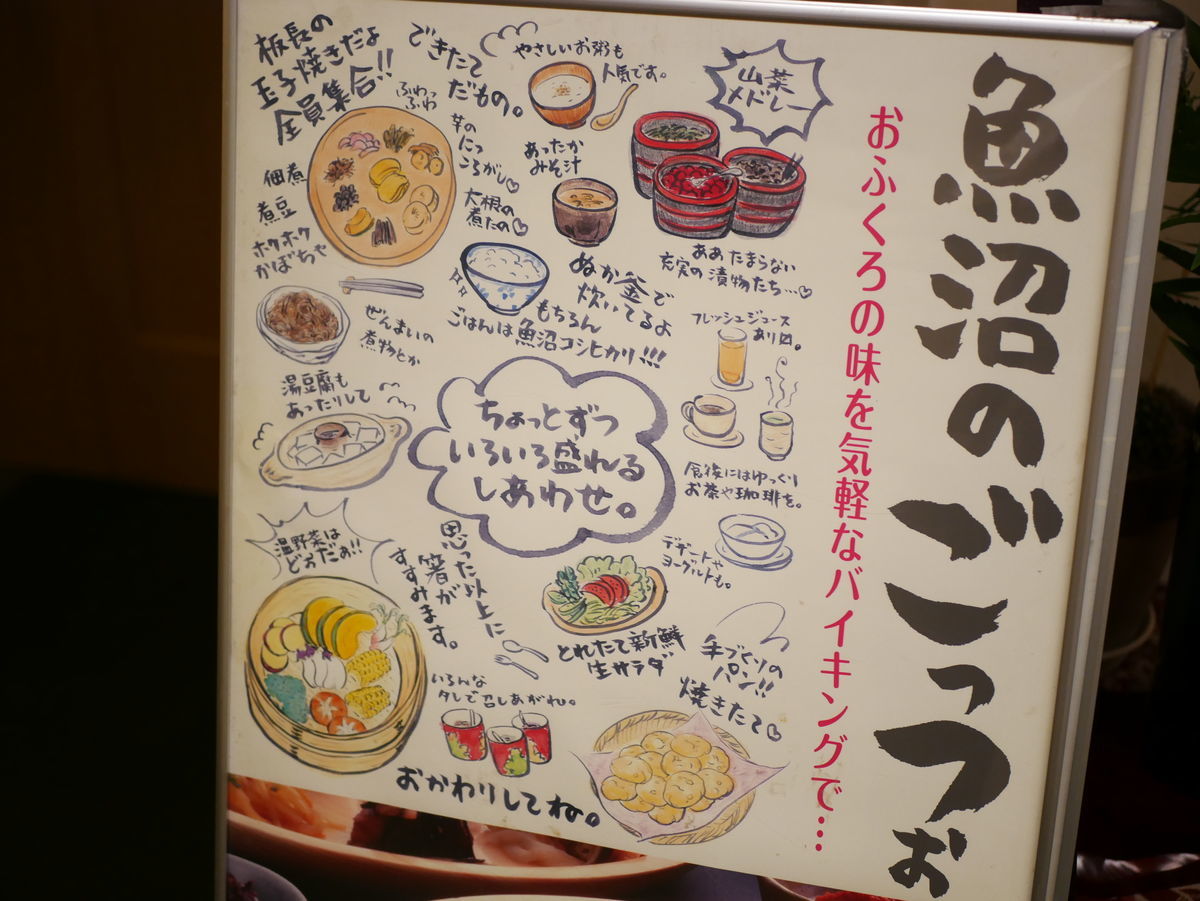 魚沼のごっつぉ
おふくろの味を気軽なバイキングで…
板長の
玉子焼きだよ
全員集合!!
ふわっ
ふわ
できたて
だもの。
やさしいお粥も
人気です。
山菜
メドレー
芋の
にっ
ころがし♡
あったか
みそ汁
佃煮
煮豆
ホクホク
かぼちゃ
大根の
煮たの♡
ああたまらない
充実の漬物たち…♡
ぬか釜で
炊いてるよ
もちろん
ごはんは魚沼コシヒカリ!!!
ぜんまいの
煮物とか
フレッシュジュース
あり〼。
湯豆腐も
あったりして
ちょっとずつ
いろいろ盛れる
しあわせ。
食後にはゆっくり
お茶や珈琲を。
温野菜は
どうだぁ!!
思った以上に
箸が
すすみます。
デザートや
ヨーグルトも。
とれたて新鮮
生サラダ
手づくりの
パン!!
焼きたて♡
いろんな
タレで召しあがれ。
おかわりしてね。